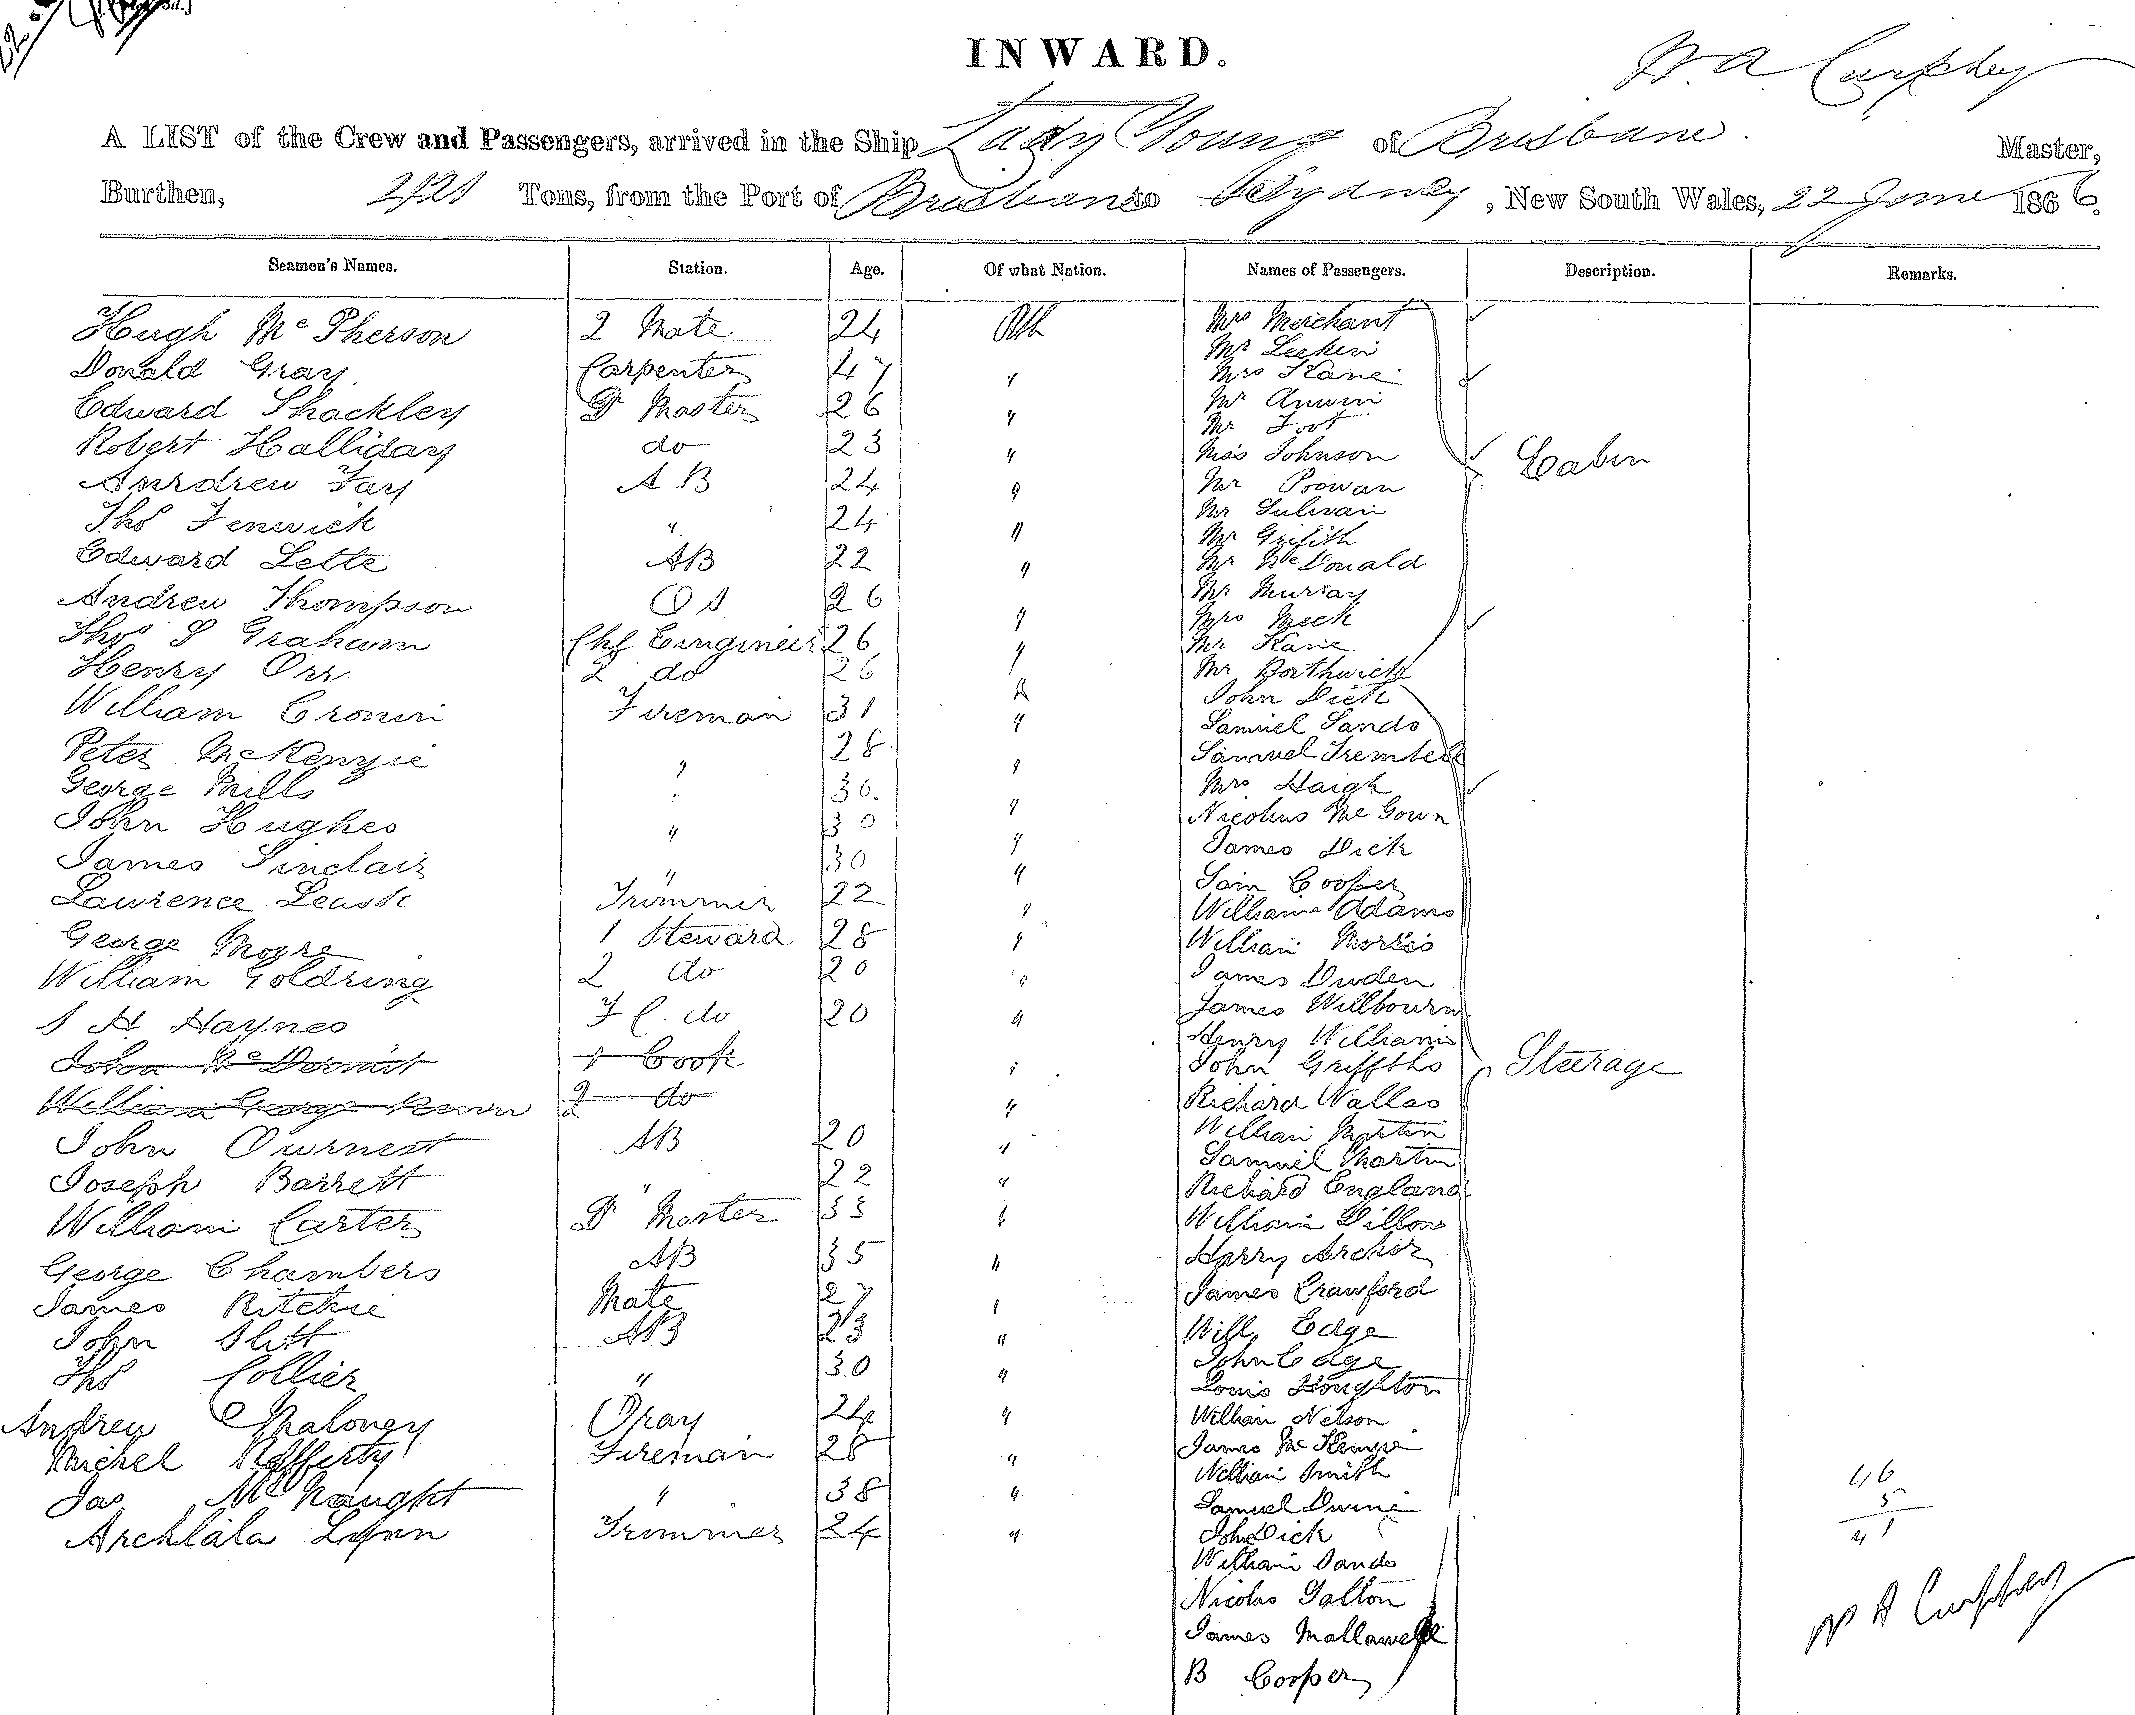 INWARD.
W A Curphey
A LIST of the Crew and Passengers, arrived in the Ship Lady Young of Brisbane.
Master,
Burthen, 421 Tons, from the Port of Brisbane to Sydney, New South Wales, 22 June 1866.
Seamen's Names. Station. Age. Of what Nation. Names of Passengers. Description. Remarks.
Hugh McPherson 2 Mate 24 Mrs Merchant
Mr
Donald Gray Carpenter 47 " Mrs Kane
Mr
Edward Shackley Qr Master 26 " Mr Foot
Robert Halliday do 23 " Miss Johnson Cabin
Andrew Fay A B 24 " Mr Prowan
Mr Sulivan
Thos Fenwick " 24 " Mr Grifith
Edward Lette AB 22 " Mr McDonald
Andrew Thompson O S 26 Mr Murray
Thos S Graham Chf Engineer 26 " Mrs Meek
Mr Kane
Henry Orr 2 do 26 " Mr Borthwick
William Cronin Fireman 31 " John Dick
Samuel Sands
Peter McKenzie " 28 " Samuel Trembell
George Mills " 30. " Mrs Haigh
John Hughes " 30 " Nicolas McGown
James Sinclair " 30 " James Dick
Lawrence Leask Trimmer 22 " Sam Cooper
William Adams
George Moore 1 Steward 28 " William Morris
William Goldring 2 do 20 " James Duden
S H Haynes F C. do 20 " James Willbourn
Henry Williams
John McDermot 1 Cook " John Griffths Steerage
William George 2 do " Richard Wallas
John Durnest AB 20 " William Martin
Samuel Martin
Joseph Barrett " 22 " Richard England
William Carter Qr Master 33 " William Dillons
George Chambers AB 35 " Harry Archer
James Ritchie Mate 27 " James Crawford
John Slitt AB 23 " Will, Edge
Thos Collier " 30 " John Edge
Louis Houghton
Andrew Maloney Gray 24 " William Nelson
Michel Rafferty Fireman 28 " James McKenzie
William Smith
Jas McNaught " 38 " Samuel Divine
Archlala Lynn Trimmer 24 " John Dick
William Sands
Nicolas Galton
James Mallawell
B Cooper
46
5
41
W A Curphey